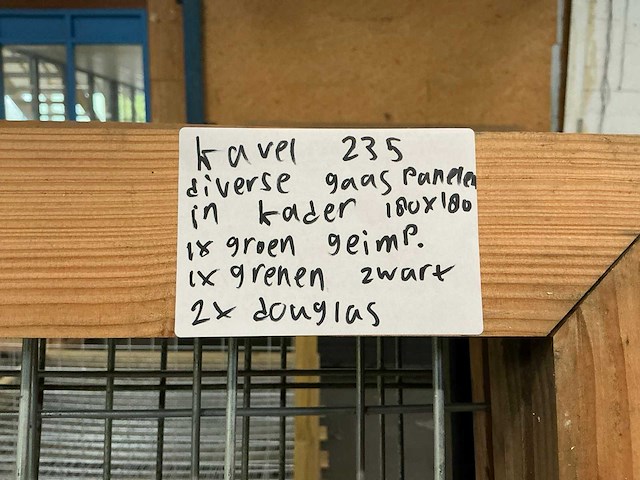 kavel 235
diverse gaas panelen
in kader 180x180
1x groen geimp.
1x grenen zwart
2x douglas